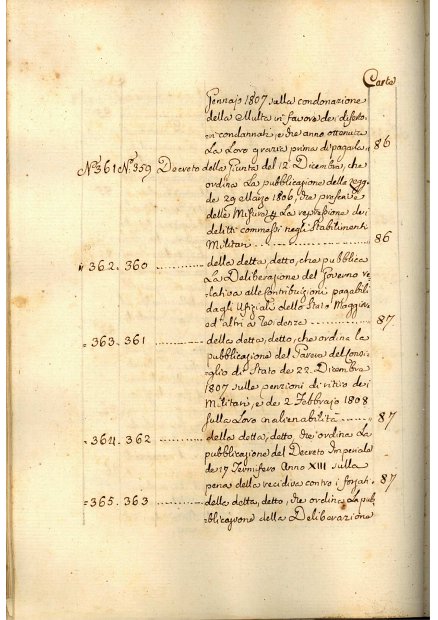 Carte
Gennajo 1807 sulla condonazione
della Multa in favore dei diserto-
ri condannati, e che anno ottenuta
La Loro grazia prima di pagala 86
N.º 361 N.º 359 Decreto della Giunta del 12 Dicembre, che
ordina La pubblicazione della Legge
de 29 Marzo 1806, che prescrive
delle Misure p La repressione dei
delitti commessi negli Stabilimenti
Militari 86
= 362. 360 della detta detto, che pubblica
La Deliberazione del Governo re-
lativa alle Contribuzioni pagabili
dagli Ufiziali dello Stato Maggiore
ed altri a 87
= 363. 361 della detta, detto, che ordina la
pubblicazione del Parere del Consi-
glio di Stato de 22. Dicembre
1807 sulle penzioni di ritiro dei
Militari, e de 2 Febbrajo 1808
sulla Loro inalienabilità 87
= 364. 362 della detta, detto, che ordina La
pubblicazione del Decreto Imperiale
de 17 Termifero Anno XIII sulla
pena della recidiva contro i forzati 87
= 365. 363 della detta, detto, che ordina La pub-
blicazione della Deliberazione